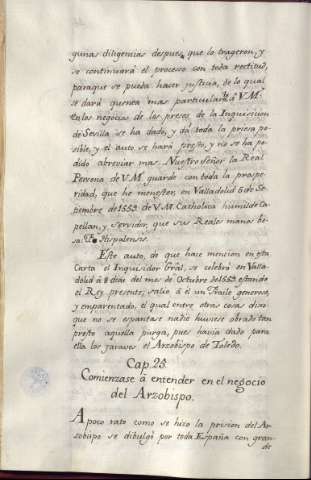 gunas diligencias despues que lo trageron, y
se continuará el proceso con toda rectitud,
paraque se pueda hacer justicia, de lo qual
se dará quenta mas particularte. á V.M.
En las negocios de los presos de la Inquisicion
de Sevilla se ha dado, y dá toda la priesa po-
sible, y el auto se hará presto, y no se ha po-
dido abreviar mas. Nuestro Señor la Real
Persona de V.M. guarde con toda la prospe-
ridad, que he menester, en Valladolid 6 de Se-
ptiembre de 1559. de V.M. Catholica humilde Ca-
pellan, y servidor, que sus Reales manos be-
sa. Hispalensis.
Este auto, de que hace mencion en esta
Carta el Inquisidor Gral, se celebró en Valla-
dolid á 8 dias del mes de Octubre del 1559 estando
el Rey presente; salio á él un Fraile generoso,
y emparentado, el qual entre otras cosas dixo
que no se espantase nadie huviese obrado tan
presto aquella purga, pues havia dado para
ella los jaraves el Arzobispo de Toledo.
Cap. 23.
Comienzase á entender en el negocio
del Arzobispo.
A poco rato como se hizo la prision del Ar-
zobispo se dibulgó por toda España con gran-
de